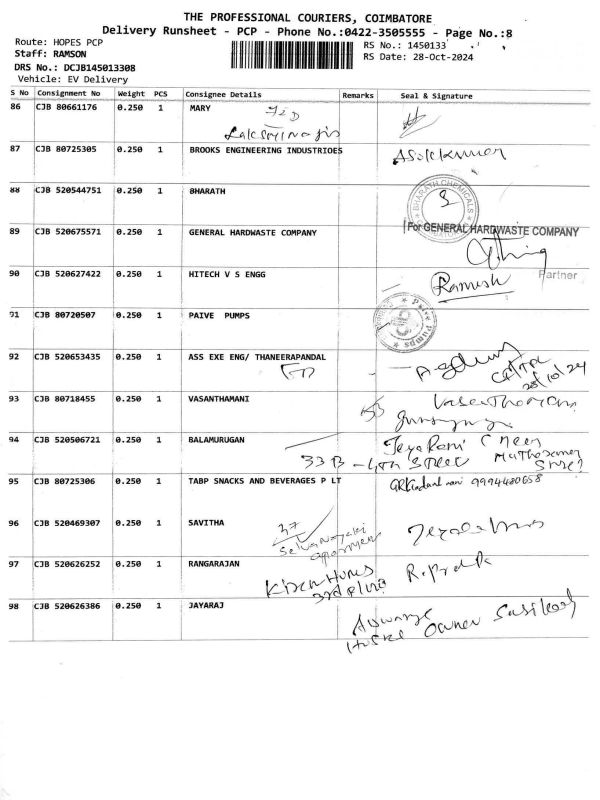 THE PROFESSIONAL COURIERS, COIMBATORE
Delivery Runsheet - PCP - Phone No.:0422-3505555 - Page No.:8
Route: HOPES PCP
RS No.: 1450133
Staff: RAMSON
RS Date: 28-Oct-2024
DRS No.: DCJB145013308
Vehicle: EV Delivery
S No Consignment No Weight PCS Consignee Details Remarks Seal & Signature
86 CJB 80661176 0.250 1 MARY
87 CJB 80725305 0.250 1 BROOKS ENGINEERING INDUSTRIOES
Asokkumar
88 CJB 520544751 0.250 1 BHARATH
BHARATH CHEMICALS
89 CJB 520675571 0.250 1 GENERAL HARDWASTE COMPANY
For GENERAL HARDWASTE COMPANY
Partner
90 CJB 520627422 0.250 1 HITECH V S ENGG
Ramesh
91 CJB 80720507 0.250 1 PAIVE PUMPS
Paive Pumps
92 CJB 520653435 0.250 1 ASS EXE ENG/ THANEERAPANDAL
28/10/24
93 CJB 80718455 0.250 1 VASANTHAMANI
94 CJB 520506721 0.250 1 BALAMURUGAN
33 B - 4th Street
95 CJB 80725306 0.250 1 TABP SNACKS AND BEVERAGES P LT
9994480658
96 CJB 520469307 0.250 1 SAVITHA
37
97 CJB 520626252 0.250 1 RANGARAJAN
98 CJB 520626386 0.250 1 JAYARAJ
House Owner